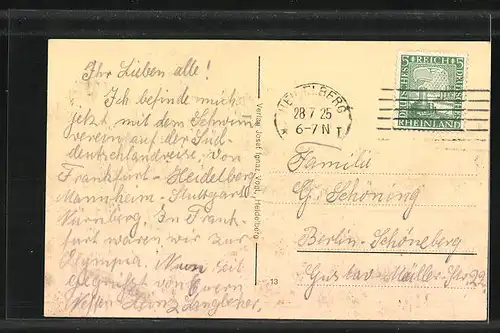 Ihr Lieben alle!
Ich befinde mich
jetzt mit dem Schwimm
verein auf der Süd-
deutschlandreise, von
Frankfurt-Heidelberg
Mannheim-Stuttgart
Nürnberg. In Frank-
furt waren wir zur
Olympia. Nun seit
gegrüßt von Euern
Neffen Heinz
Verlag Josef Ignaz Vogt, Heidelberg
13
HEIDELBERG
28 7 25
6-7 N
* T
DEUTSCHES REICH
5 5
RHEINLAND
Familie
G. Schöning
Berlin-Schöneberg
Gustav-Müller-Str 22